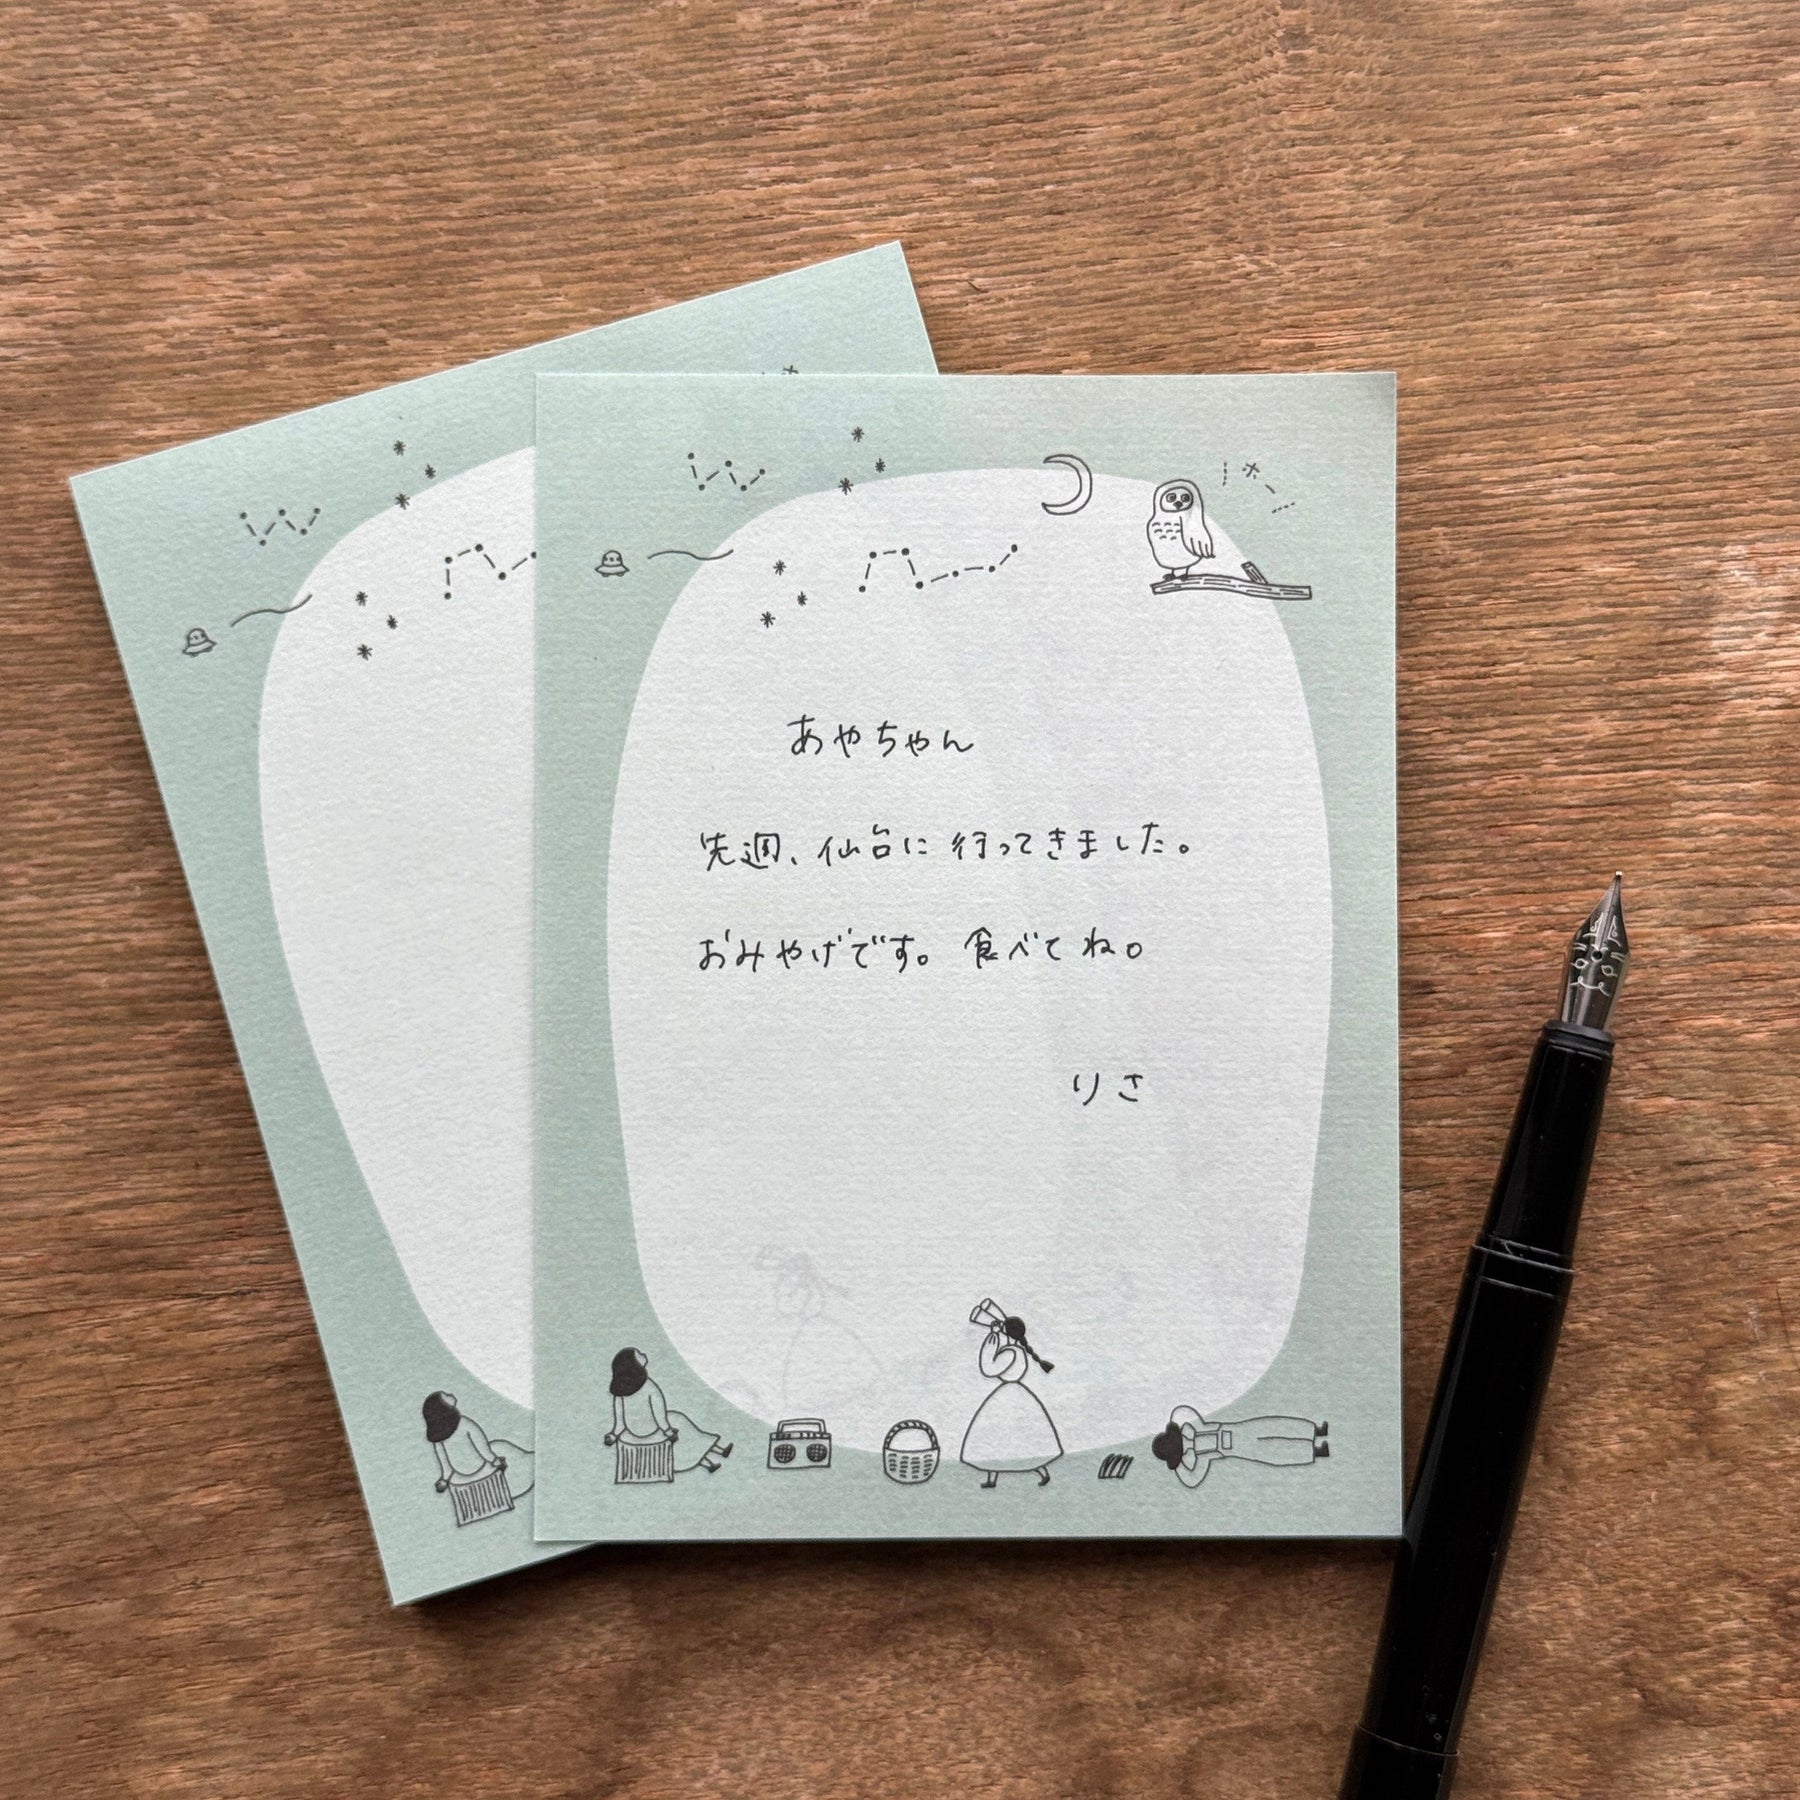 ホー
あやちゃん
先週、仙台に行ってきました。
おみやげです。食べてね。
りさ